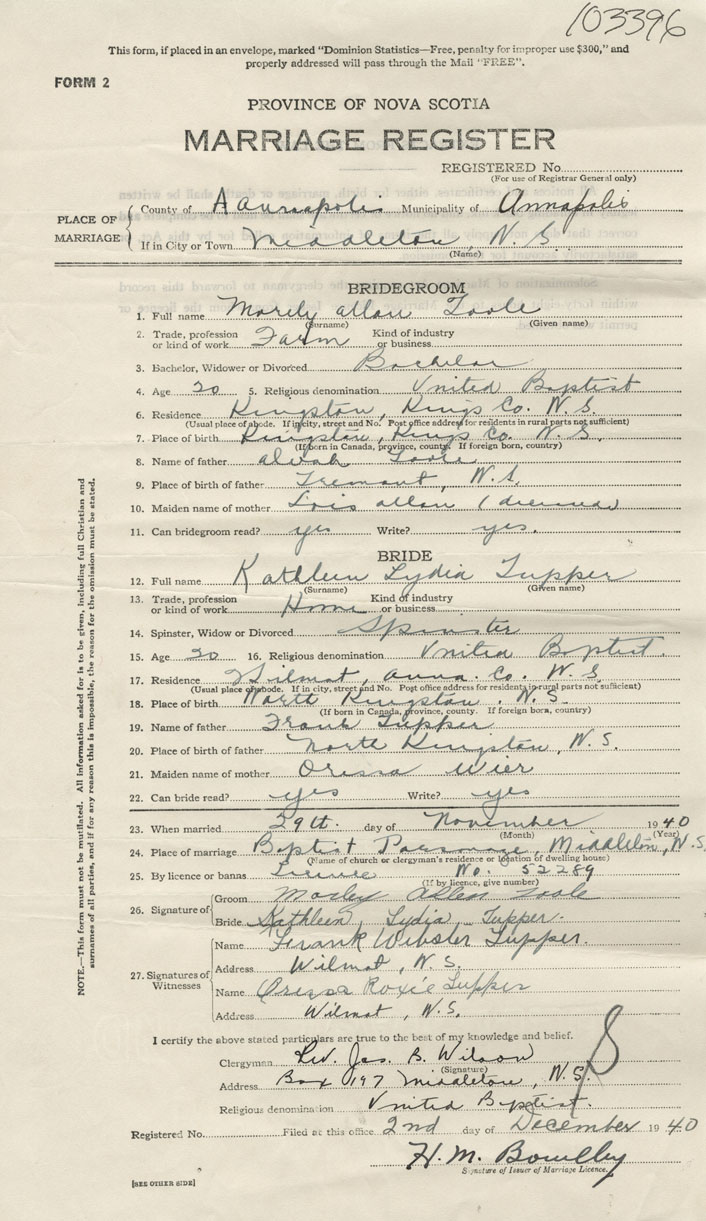 103396
This form, if placed in an envelope, marked "Dominion Statistics—Free, penalty for improper use $300," and
properly addressed will pass through the Mail "FREE".
FORM 2
PROVINCE OF NOVA SCOTIA
MARRIAGE REGISTER
REGISTERED No.
(For use of Registrar General only)
PLACE OF MARRIAGE
County of Annapolis Municipality of Annapolis
If in City or Town Middleton N. S.
(Name)
BRIDEGROOM
1. Full name allan Toole
(Surname) (Given name)
2. Trade, profession or kind of work Farm Kind of industry or business
3. Bachelor, Widower or Divorced Bachelor
4. Age 20 5. Religious denomination United Baptist
6. Residence Kingston, Kings Co. N. S.
(Usual place of abode. If in city, street and No. Post office address for residents in rural parts not sufficient)
7. Place of birth Kingston, Kings Co. N. S.
(If born in Canada, province, county. If foreign born, country)
8. Name of father Toole
9. Place of birth of father Tremont, N.S.
10. Maiden name of mother Lois allan (deceased)
11. Can bridegroom read? yes Write? yes.
BRIDE
12. Full name Kathleen Lydia Tupper
(Surname) (Given name)
13. Trade, profession or kind of work Home Kind of industry or business
14. Spinster, Widow or Divorced Spinster
15. Age 20 16. Religious denomination United Baptist.
17. Residence Wilmot, Anna. Co. N. S.
(Usual place of abode. If in city, street and No. Post office address for residents in rural parts not sufficient)
18. Place of birth North Kingston, N. S.
(If born in Canada, province, county. If foreign born, country)
19. Name of father Frank Tupper
20. Place of birth of father North Kingston, N. S.
21. Maiden name of mother Orissa Wier
22. Can bride read? yes Write? yes
23. When married 29th. day of November 1940
(Month) (Year)
24. Place of marriage Baptist Parsonage, Middleton, N.S.
(Name of church or clergyman's residence or location of dwelling house)
25. By licence or banns Licence No. 52289
(If by licence, give number)
26. Signature of
Groom Allen Toole
Bride Kathleen Lydia Tupper.
27. Signatures of Witnesses
Name Frank Webster Tupper.
Address Wilmot, N.S.
Name Orissa Roxie Tupper
Address Wilmot, N.S.
I certify the above stated particulars are true to the best of my knowledge and belief.
Clergyman Rev. Jas. B. Wilson
(Signature)
Address Box 197 Middleton, N.S.
Religious denomination United Baptist.
Registered No. Filed at this office 2nd day of December 1940
H. M.
Signature of Issuer of Marriage Licence.
[SEE OTHER SIDE]
NOTE.—This form must not be mutilated. All information asked for is to be given, including full Christian and
surnames of all parties, and if for any reason this is impossible, the reason for the omission must be stated.